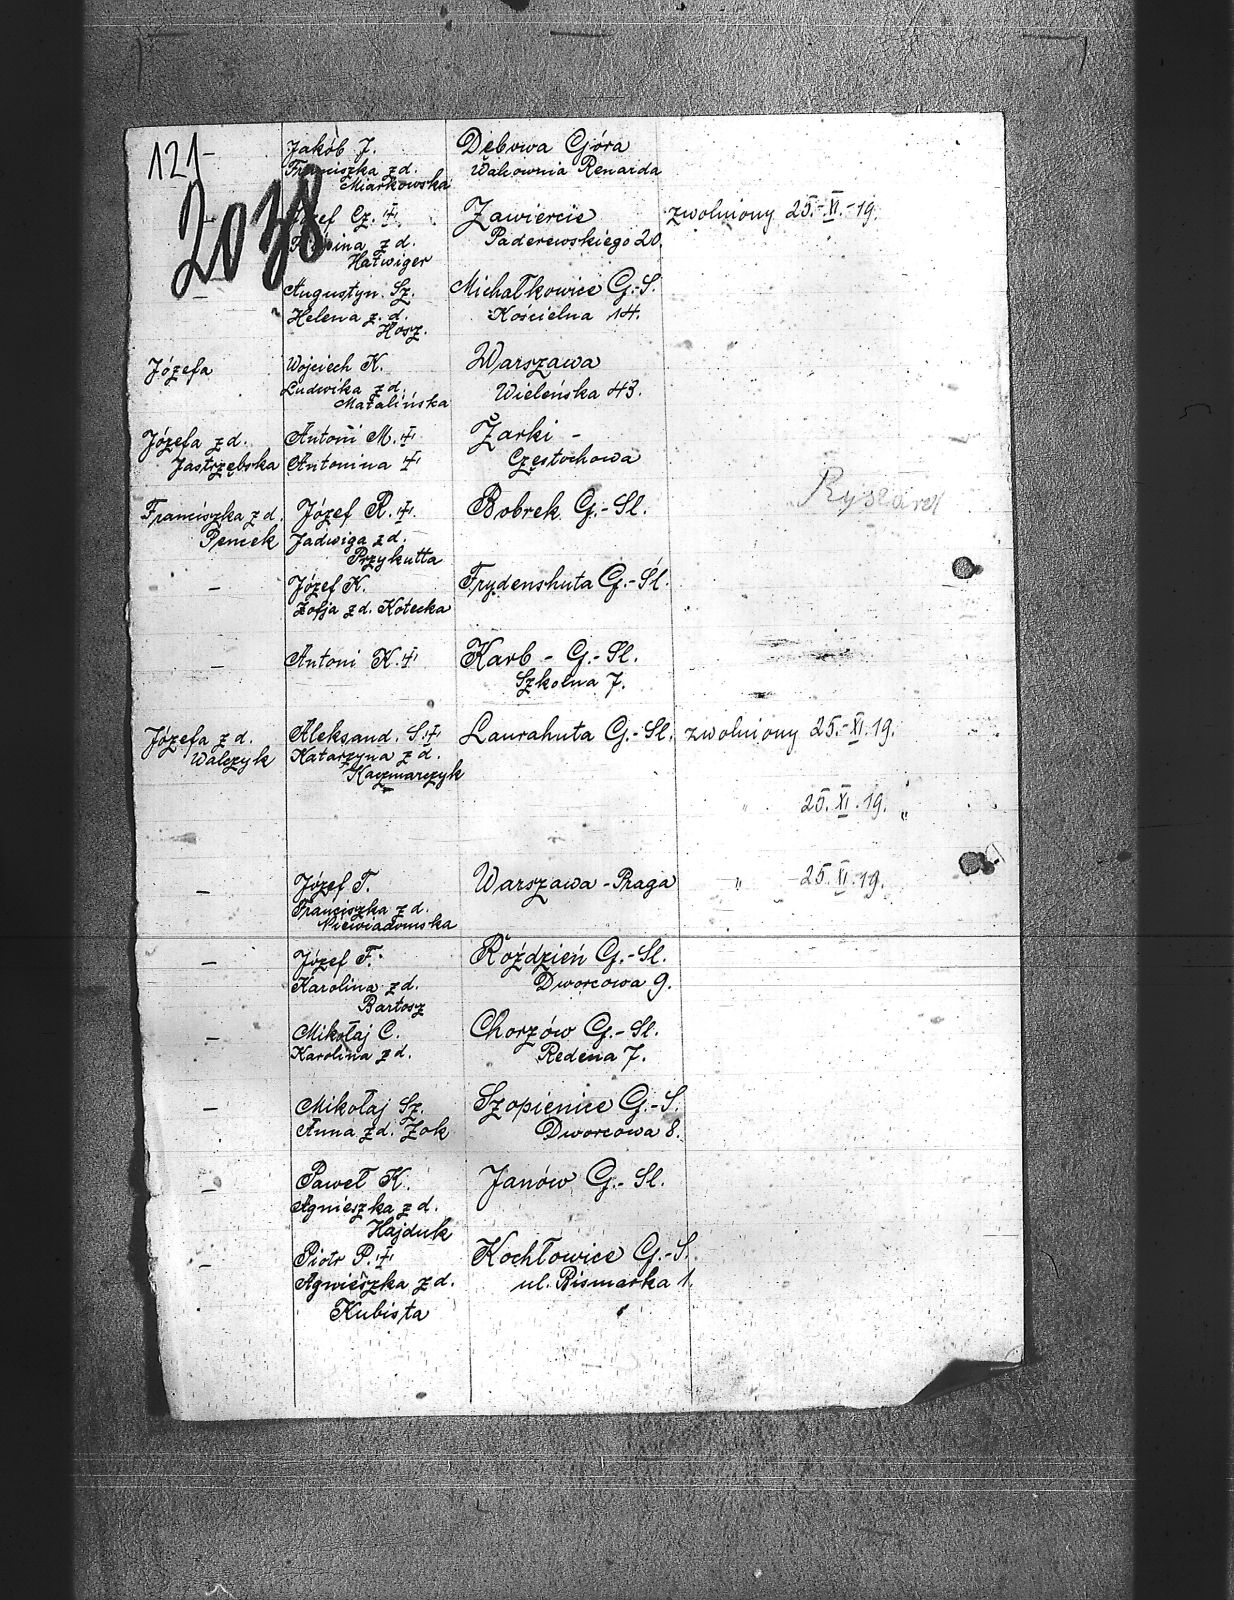 121-
2038
Jakób J. Dębowa Góra
Franciszka z d. Walcownia Renarda
Miarkowska
Józef Cz. Zawiercie zwolniony 25.-XI.-19.
z d. Paderewskiego 20.
Hatwiger
Augustyn. Sz. Michałkowice G.-S.
Helena z. d. Kościelna 14.
Hosz.
Józefa Wojciech K. Warszawa
Ludwika z d. Wieleńska 43.
Matalińska
Józefa z d. Antoni M. Żarki -
Jastrzębska Antonina Częstochowa
Franciszka z d. Józef R. Bobrek G.-Sl.
Pencek Jadwiga z d.
Przykutta
Ryszard
- Józef K. Frydenshuta G.-Sl.
Zofja z d. Kotecka
- Antoni K. Karb - G.-Sl.
Szkolna 7.
Józefa z d. Aleksand. S. Laurahuta G.-Sl. zwolniony 25.-XI.19.
Walczyk Katarzyna z d.
Kaczmarczyk
" 25.XI.19. "
- Józef T. Warszawa - Praga " 25.XI.19.
Franciszka z d.
Niewiadomska
- Józef F. Roździeń G.-Sl.
Karolina z d. Dworcowa 9.
Bartosz
- Mikołaj C. Chorzów G.-Sl.
Karolina z d. Redena 7.
- Mikołaj Sz. Szopienice G.-S.
Anna z d. Żok Dworcowa 8.
- Paweł K. Janów G.-Sl.
Agnieszka z d.
Hajduk
- Piotr P. Kochłowice G.-S.
Agnieszka z d. ul. Bismarka 1.
Kubista